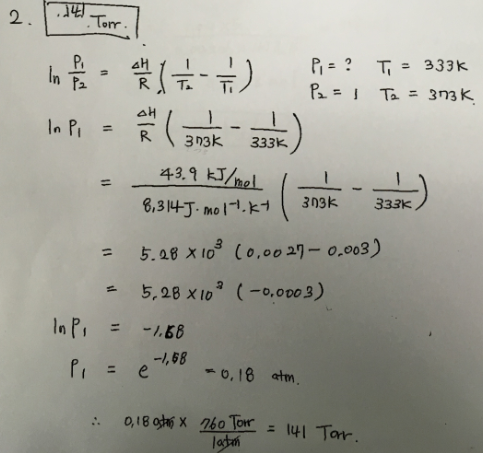 2. 141 Torr.
ln P₁/P₂ = ΔH/R (1/T₂ - 1/T₁) P₁ = ? T₁ = 333K
P₂ = 1 T₂ = 373K
ln P₁ = ΔH/R (1/373K - 1/333K)
= 43.9 kJ/mol / 8,314 J·mol⁻¹·K⁻¹ (1/373K - 1/333K)
= 5.28 × 10³ (0.0027 - 0.003)
= 5,28 × 10³ (-0.0003)
ln P₁ = -1.58
P₁ = e^-1,58 = 0.18 atm.
∴ 0,18 atm × 760 Torr / 1atm = 141 Torr.